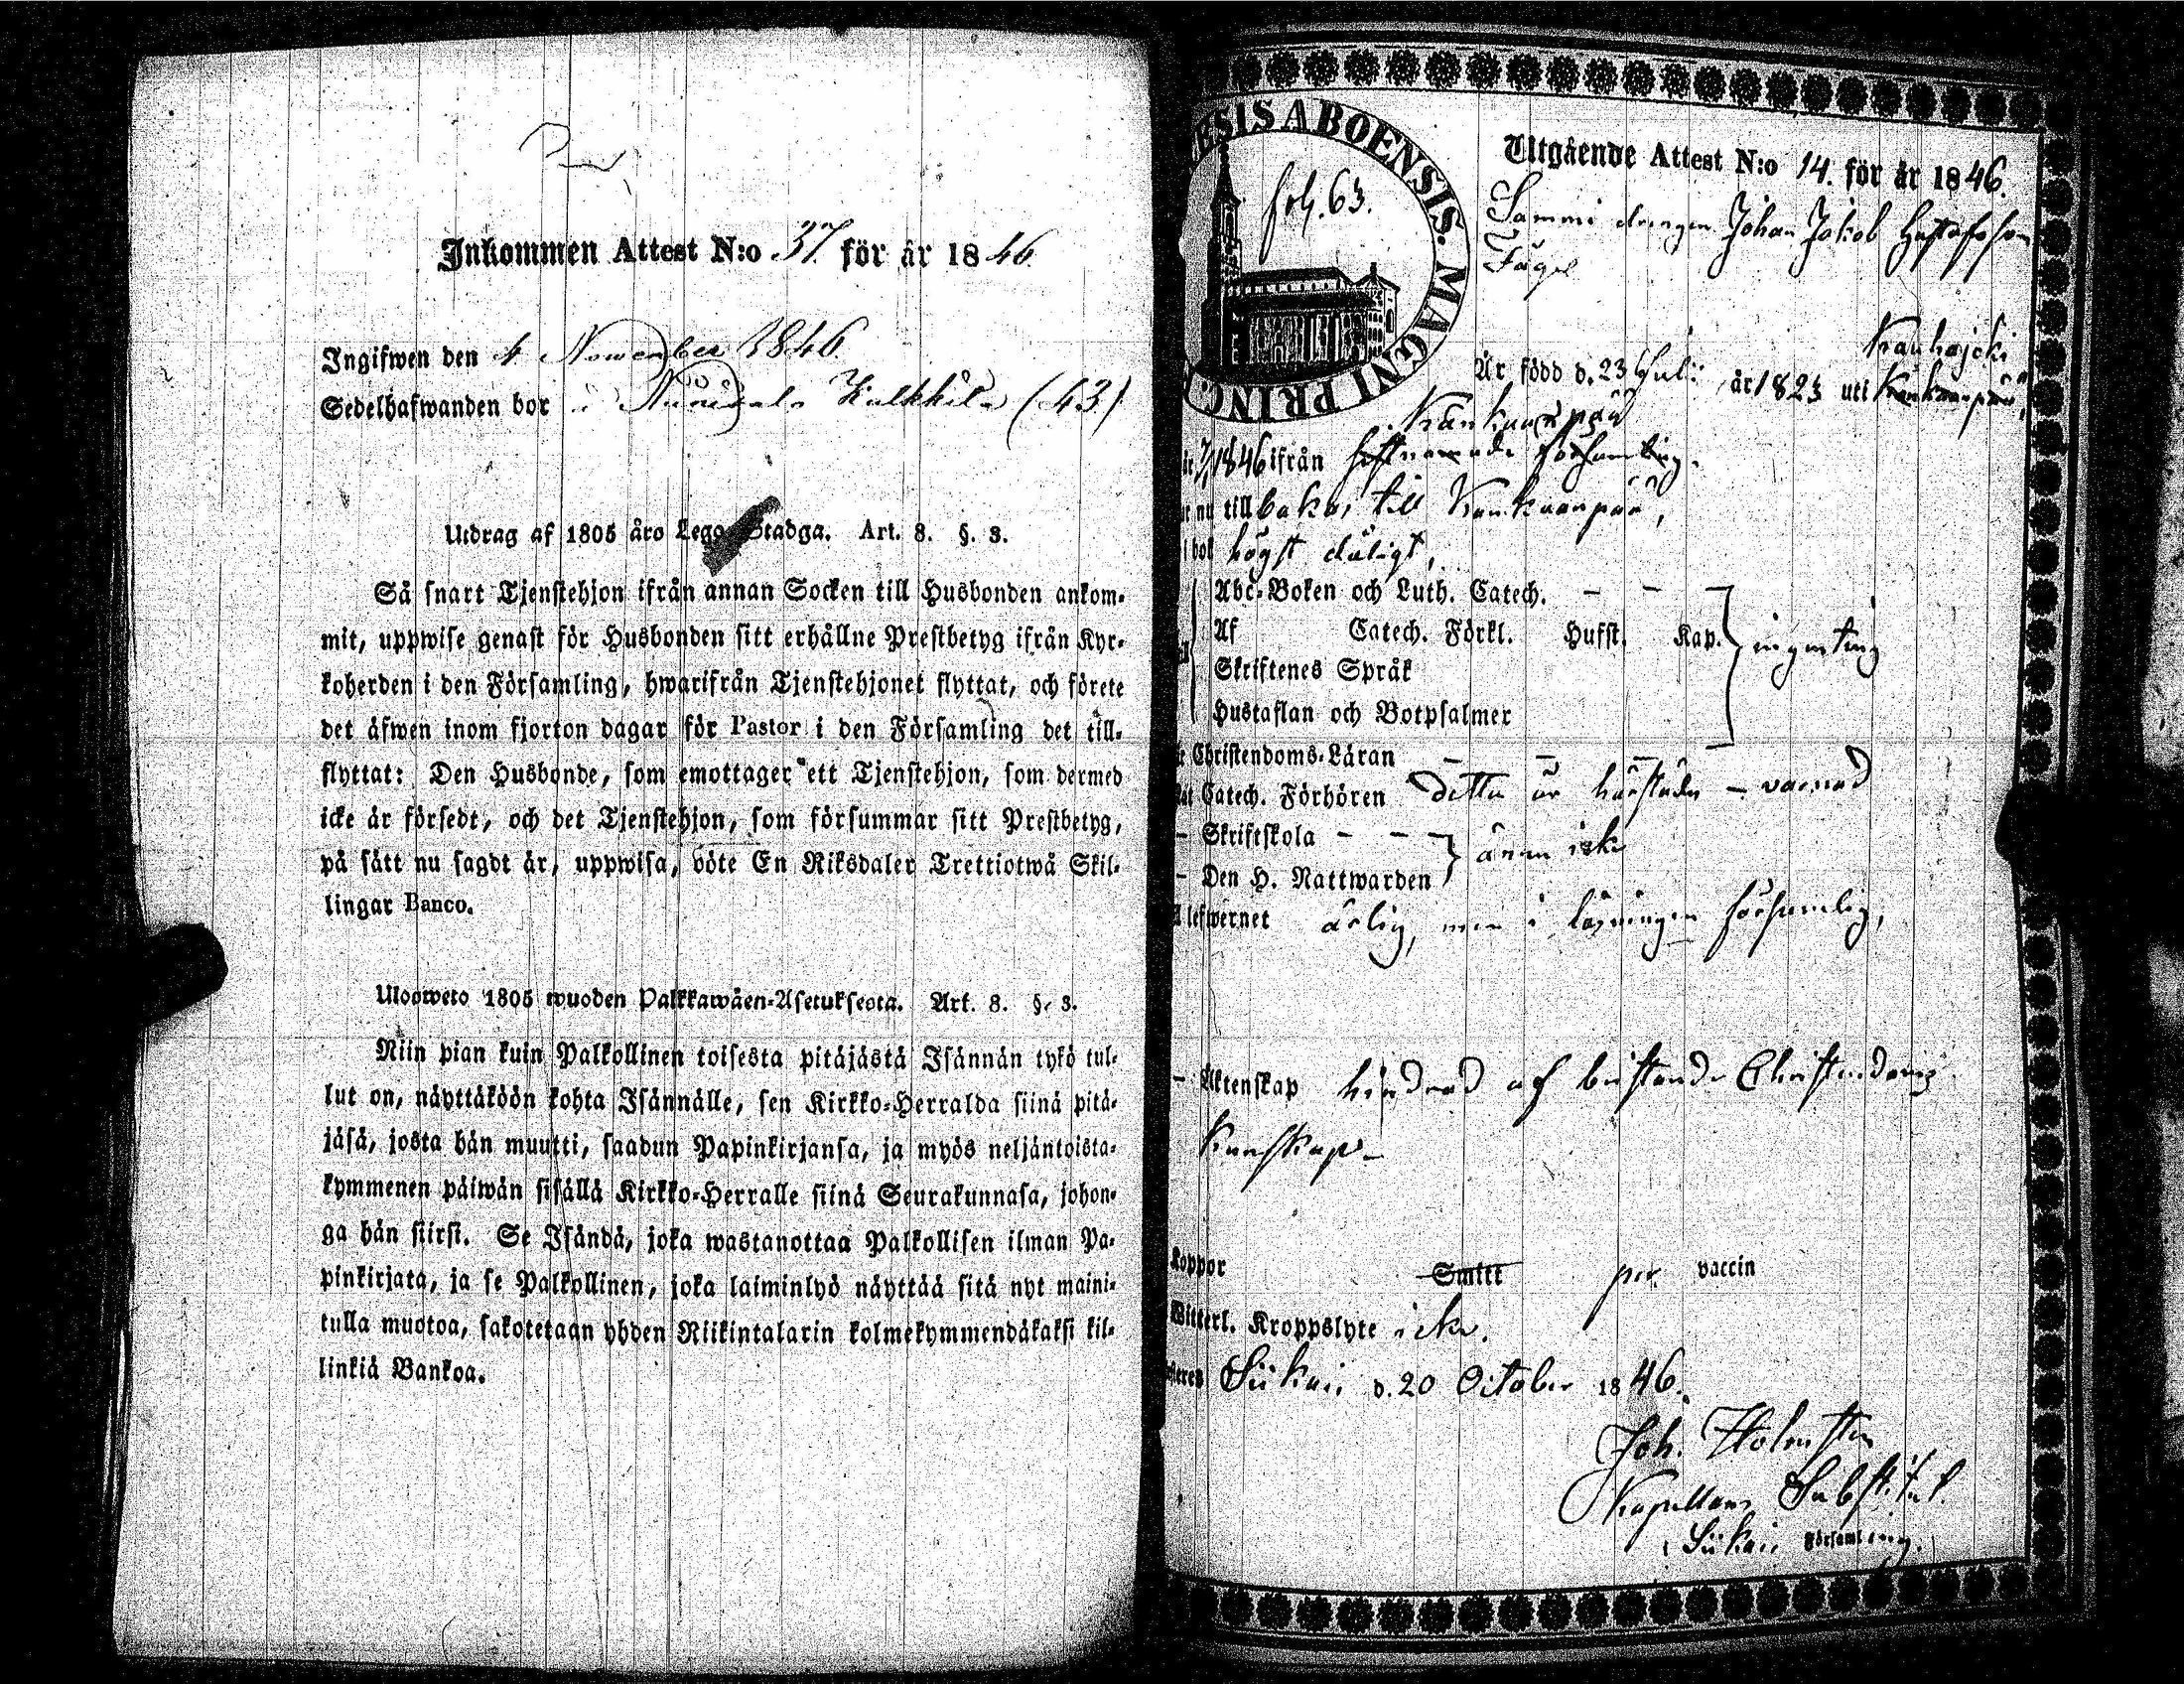 Inkommen Attest N:o 37 för år 1846
Ingifwen den 4 November 1846
Sedelhafwanden bor i Kulkkila (43)
Utdrag af 1805 åro Lego-Stadga. Art. 8. §. 3.
Så snart Tjenstehjon ifrån annan Socken till Husbonden ankom-
mit, uppwise genast för Husbonden sitt erhållne Prestbetyg ifrån Kyr-
koherden i den Församling, hwarifrån Tjenstehjonet flyttat, och förete
det äfwen inom fjorton dagar för Pastor i den Församling det till-
flyttat: Den Husbonde, som emottager ett Tjenstehjon, som dermed
icke är försedt, och det Tjenstehjon, som försummar sitt Prestbetyg,
på sätt nu sagdt är, uppwisa, böte En Riksdaler Trettiotwå Skil-
lingar Banco.
Ulosweto 1805 wuoden Palkkawäen-Asetuksesta. Art. 8. §. 3.
Niin pian kuin Palkollinen toisesta pitäjästä Isännän tykö tul-
lut on, näyttäköön kohta Isännälle, sen Kirkko-Herralda siinä pitä-
jäsä, josta hän muutti, saadun Papinkirjansa, ja myös neljäntoista-
kymmenen päiwän sisällä Kirkko-Herralle siinä Seurakunnasa, johon-
ga hän siirsi. Se Isändä, joka wastanottaa Palkollisen ilman Pa-
pinkirjata, ja se Palkollinen, joka laiminlyö näyttää sitä nyt maini-
tulla muotoa, sakotetaan yhden Riikintalarin kolmekymmendäkaksi kil-
linkiä Bankoa.
ESIS ABOENSIS. MAGNI PRINC.
fol. 63.
Utgående Attest N:o 14. för år 1846.
drengen Johan Jakob Gustafsson
Fågel
Är född d. 23 Juli år 1823 uti Kankaanpää,
Kankaanpää
1846 ifrån församling.
nu tillbaka till Kankaanpää,
bok högst dåligt,
Abc-Boken och Luth. Catech. – –
Af Catech. Förkl. Hufst. Kap. ingenting
Skriftenes Språk
Hustaflan och Botpsalmer
Christendoms-Läran – – –
Catech. Förhören detta år härstädes – varnad
– Skriftskola – – ännu icke
– Den H. Nattwarden
lefwernet ärlig, men i läsningen försumlig,
– Äktenskap hindrad af bristande Christendoms
kunskap –
Koppor Smitt per vaccin
Witterl. Kroppslyte icke.
Siikais d. 20 October 1846.
Joh. Holmsten
Kapellans Substitut.
i Siikais Församling.